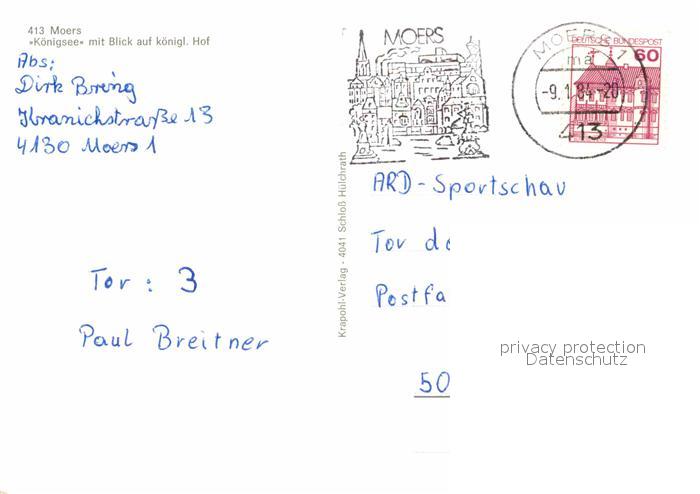 413 Moers
»Königsee« mit Blick auf königl. Hof
Abs:
Dirk Bring
Kranichstraße 13
4130 Moers 1
Tor : 3
Paul Breitner
Krapohl-Verlag - 4041 Schloß Hülchrath
MOERS
MOERS 1
ma
-9.1.84-20
413
DEUTSCHE BUNDESPOST
60
ARD-Sportschau
Tor de
Postfa
50
privacy protection
Datenschutz